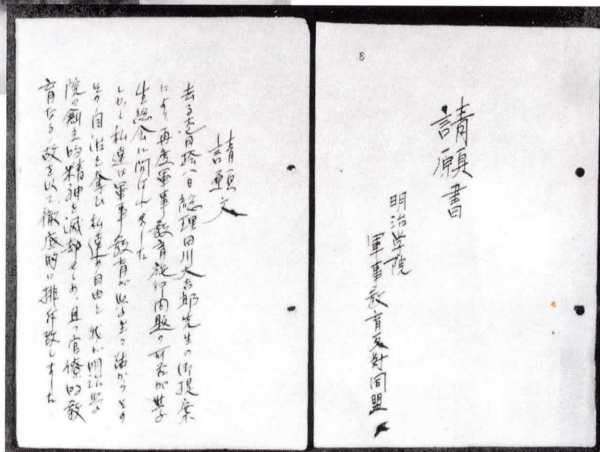 8
請願書
明治学院
軍事教育反対同盟
請願文
去る壱月拾八日総理田川大吉郎先生の御提案
により再度軍事教育施行問題の可否が学
生総会に問はれました
しかし私達は軍事教育が
その自治を奪ひ私達の自由と我が明治学
院の創立的精神を滅却せしめ、且つ官僚的教
育なる故を以て徹底的に排斥致しました